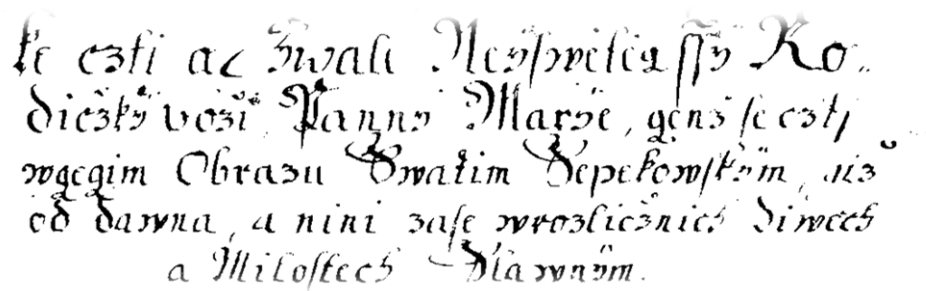 ke czti ac Hwale Neyswietiegssy Ro-
dicžky Boži Panny Marye, genž se cztj
wgegim Obrazu Swatim Sepekowskym, giž
od dawna, a nini zase wrozlicžnich Diwech
a Milostech Slawnym.